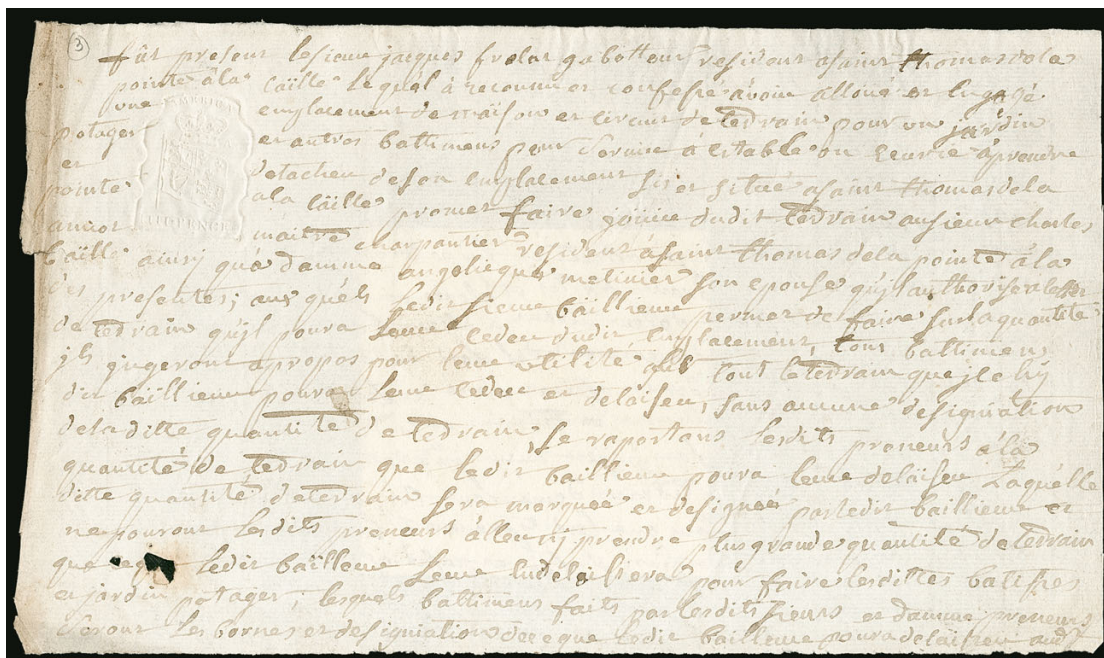 3
fût present le sieur jacques frelat gabotteur resident a saint thomas de la
pointe â la caïlle lequél à reconnu et confessé avoir alloué et engagé
une emplacement de maison et circuit de tedrain pour un jardin
potager et autres battimens pour servire à estable ou ecurie à prendre
et detacheu de son emplacement sis et situé a saint thomas de la
pointe a la caïlle promet faire joüire dudit tedrain au sieur charles
amiot maitre charpantier resident à saint thomas de la pointe à la
caïlle ainsy qu'a damme angelique metivier son epouse qu'il authorise a l'effet
des presentes; aux quéls ledit sieur baïllieur permet de faire sur la quantité
de tedrain qu'jl poura leur cedeu dudit emplacement, tous battimens
jls jugeront apropos pour leur utilité tout le tedrain que jle
dit baïllieur poura leur cedeu et delaiseu, sans aucune designiation
de la ditte quantité de tedrain, se raportans lesdits preneurs à la
quantité de tedrain que ledit baillieur poura leur delaïseu laquélle
ditte quantité de tedrain sera marquée et designée par ledit baillieur et
ne pouront lesdits preneurs àlleu en prendre plus grande quantité de tedrain
que ledit baïlleur leur delaisera pour faire lesdittes batisses
en jardin potager; lesquels battimens faits par lesdits sieurs et damme preneurs
seront les bornes et designiation de ce que ledit bailleur poura delaiseu
AMERICA